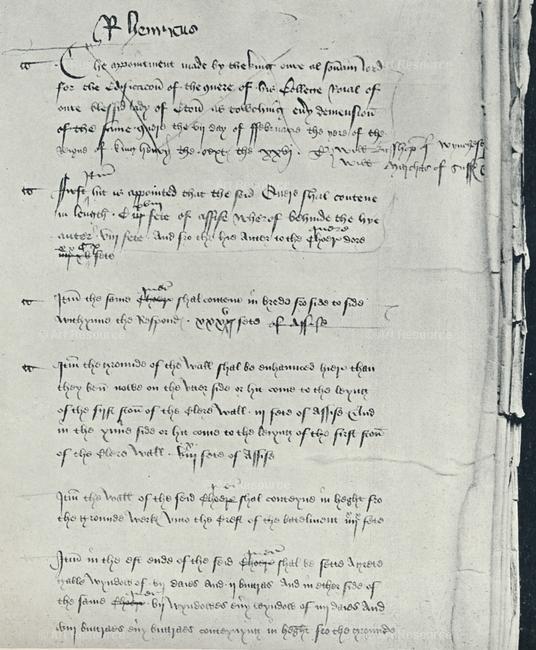 R henricus
The apointment made by the king oure al souain lord
for the Edificacon of the quere of his College Roial of
oure blessid lady of Eton as towching eny demension
of the same quere the vij day of ffebruare the yere of the
Regne of king henry the sixt the xxvj
Will Bisshop of Wynchestr
Will Marches of Suff
Itm
ffirst hit is apointed that the seid Quere shal contene
in length C iij fete of assise wherof behinde the hye
auter viij fete And fro the hie auter to the quere dore
fete
Itm the same quere shal conten in brede fro side to side
withynne the Respond xxxij fete of Assise
Itm the grounde of the wall shal be enhaunced hier than
they ben nowe on the vtter side or hit come to the leyng
of the first ston of the Clere wall iij fete of Assise And
in the ynne side or hit come to the leyng of the first ston
of the Clere wall fete of Assise
Itm the wall of the seid quere shal conteyne in heght fro
the grounde werk vnto the Crest of the batelment fete
Itm in the est ende of the seid quere shal be sette a grete
gable wyndowe of vij daies and ij butras And in either side of
the same quere vij wyndowes euy wyndowe of iiij daies And
viij butraes euy butraes conteynyng in heght fro the grounde